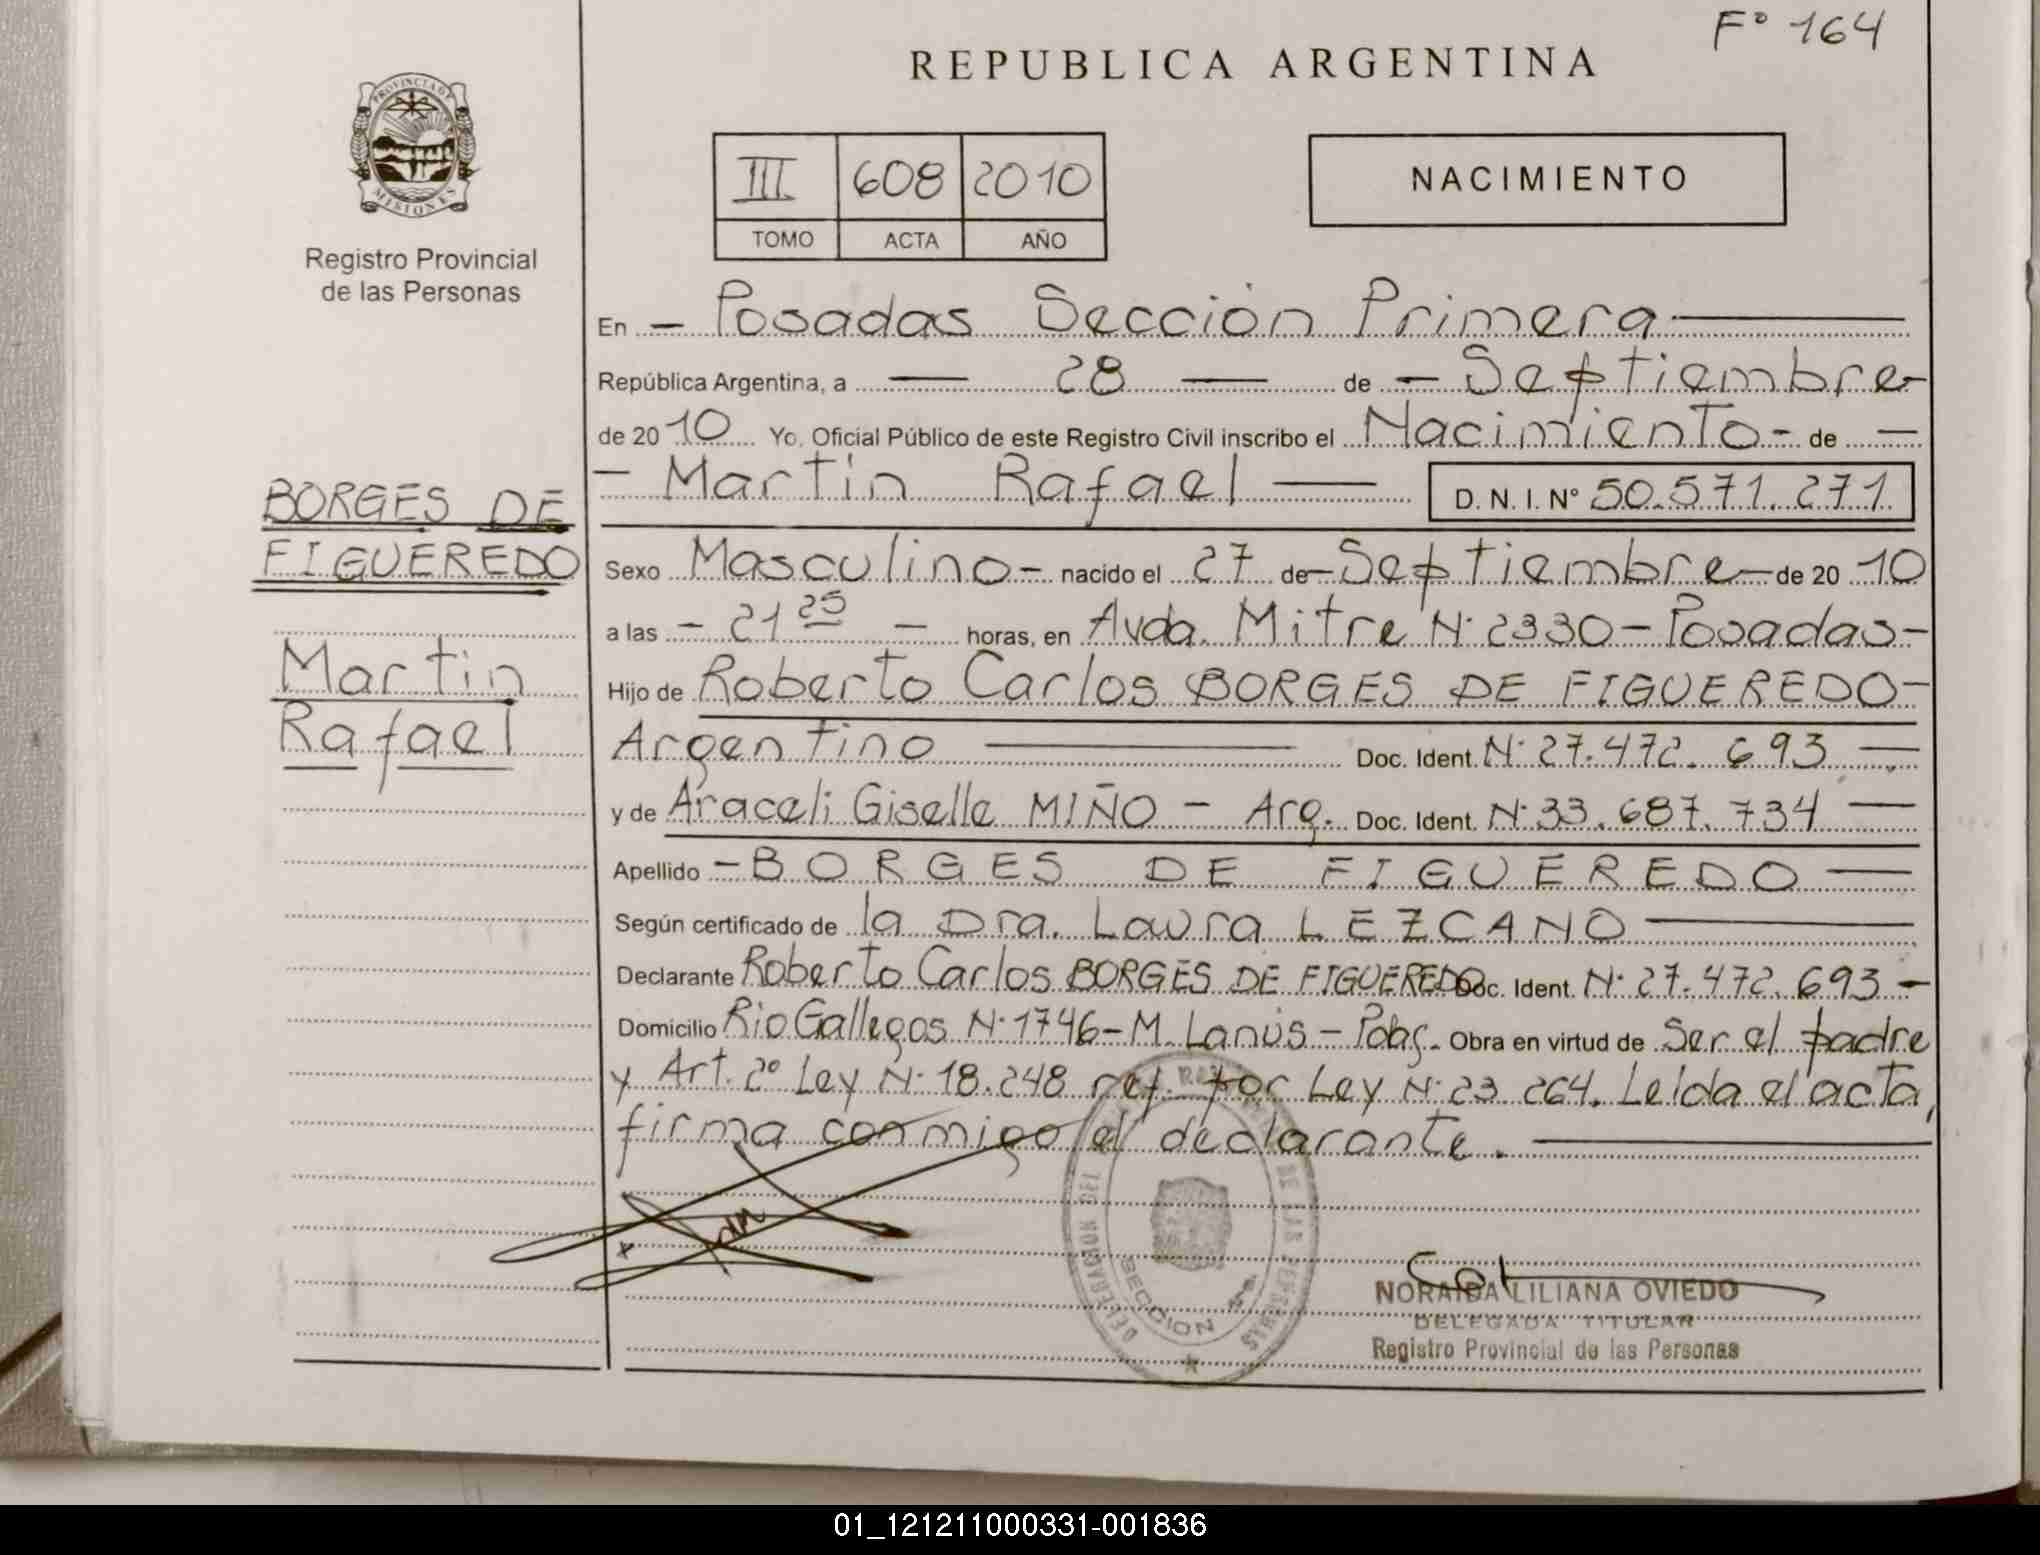 Fº 164
REPUBLICA ARGENTINA
PROVINCIA DE
MISIONES
Registro Provincial
de las Personas
III 608 2010
TOMO ACTA AÑO
NACIMIENTO
En - Posadas Sección Primera
República Argentina, a - 28 - de - Septiembre -
de 20 10 Yo, Oficial Público de este Registro Civil inscribo el Nacimiento - de -
- Martin Rafael - D. N. I. Nº 50.571.271
BORGES DE
FIGUEREDO
Martin
Rafael
Sexo Masculino - nacido el 27 de - Septiembre - de 20 10
a las - 21 25 - horas, en Avda. Mitre N· 2330 - Posadas -
Hijo de Roberto Carlos BORGES DE FIGUEREDO -
Argentino - Doc. Ident. N· 27.472.693 -
y de Araceli Giselle MIÑO - Arg. Doc. Ident. N· 33.687.734 -
Apellido - BORGES DE FIGUEREDO -
Según certificado de la Dra. Laura LEZCANO
Declarante Roberto Carlos BORGES DE FIGUEREDO Doc. Ident. N· 27.472.693 -
Domicilio Rio Gallegos N· 1746 - M. Lanús - Pdas. Obra en virtud de Ser el padre
y Art. 2º Ley N· 18.248 ref. por Ley N· 23.264. Leída el acta,
firma conmigo el declarante.
DELEGACION DEL DE LAS PERSONAS
SECCION 1ra.
NORAIDA LILIANA OVIEDO
DELEGADA TITULAR
Registro Provincial de las Personas
01_121211000331-001836